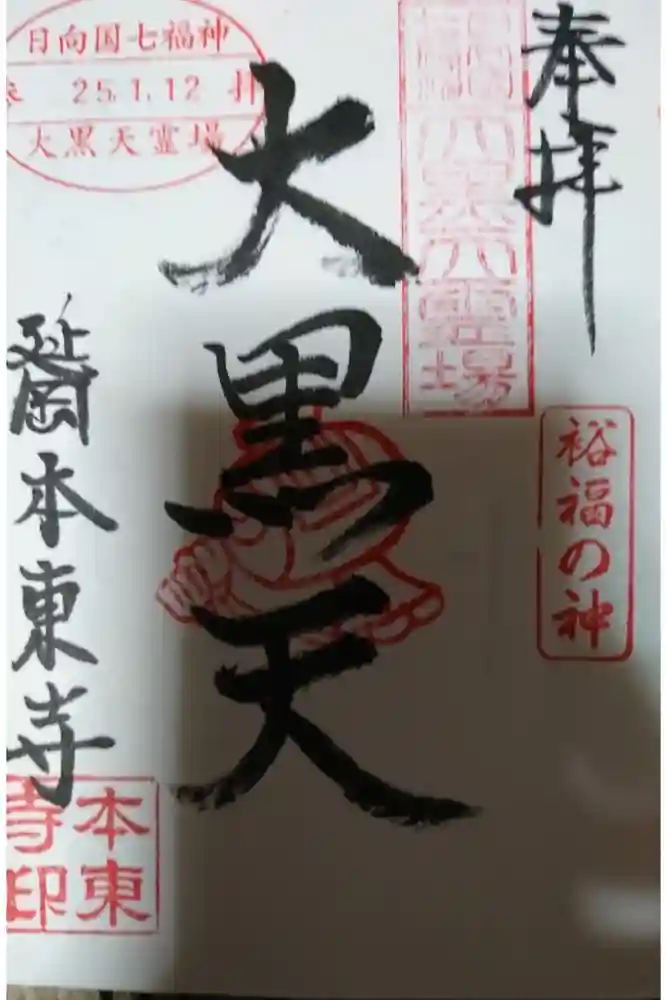 奉拝
裕福の神
大黒天霊場
大黒天
日向国七福神
25.1.12 拝
大黒天霊場
延岡
本東寺
本東
寺印